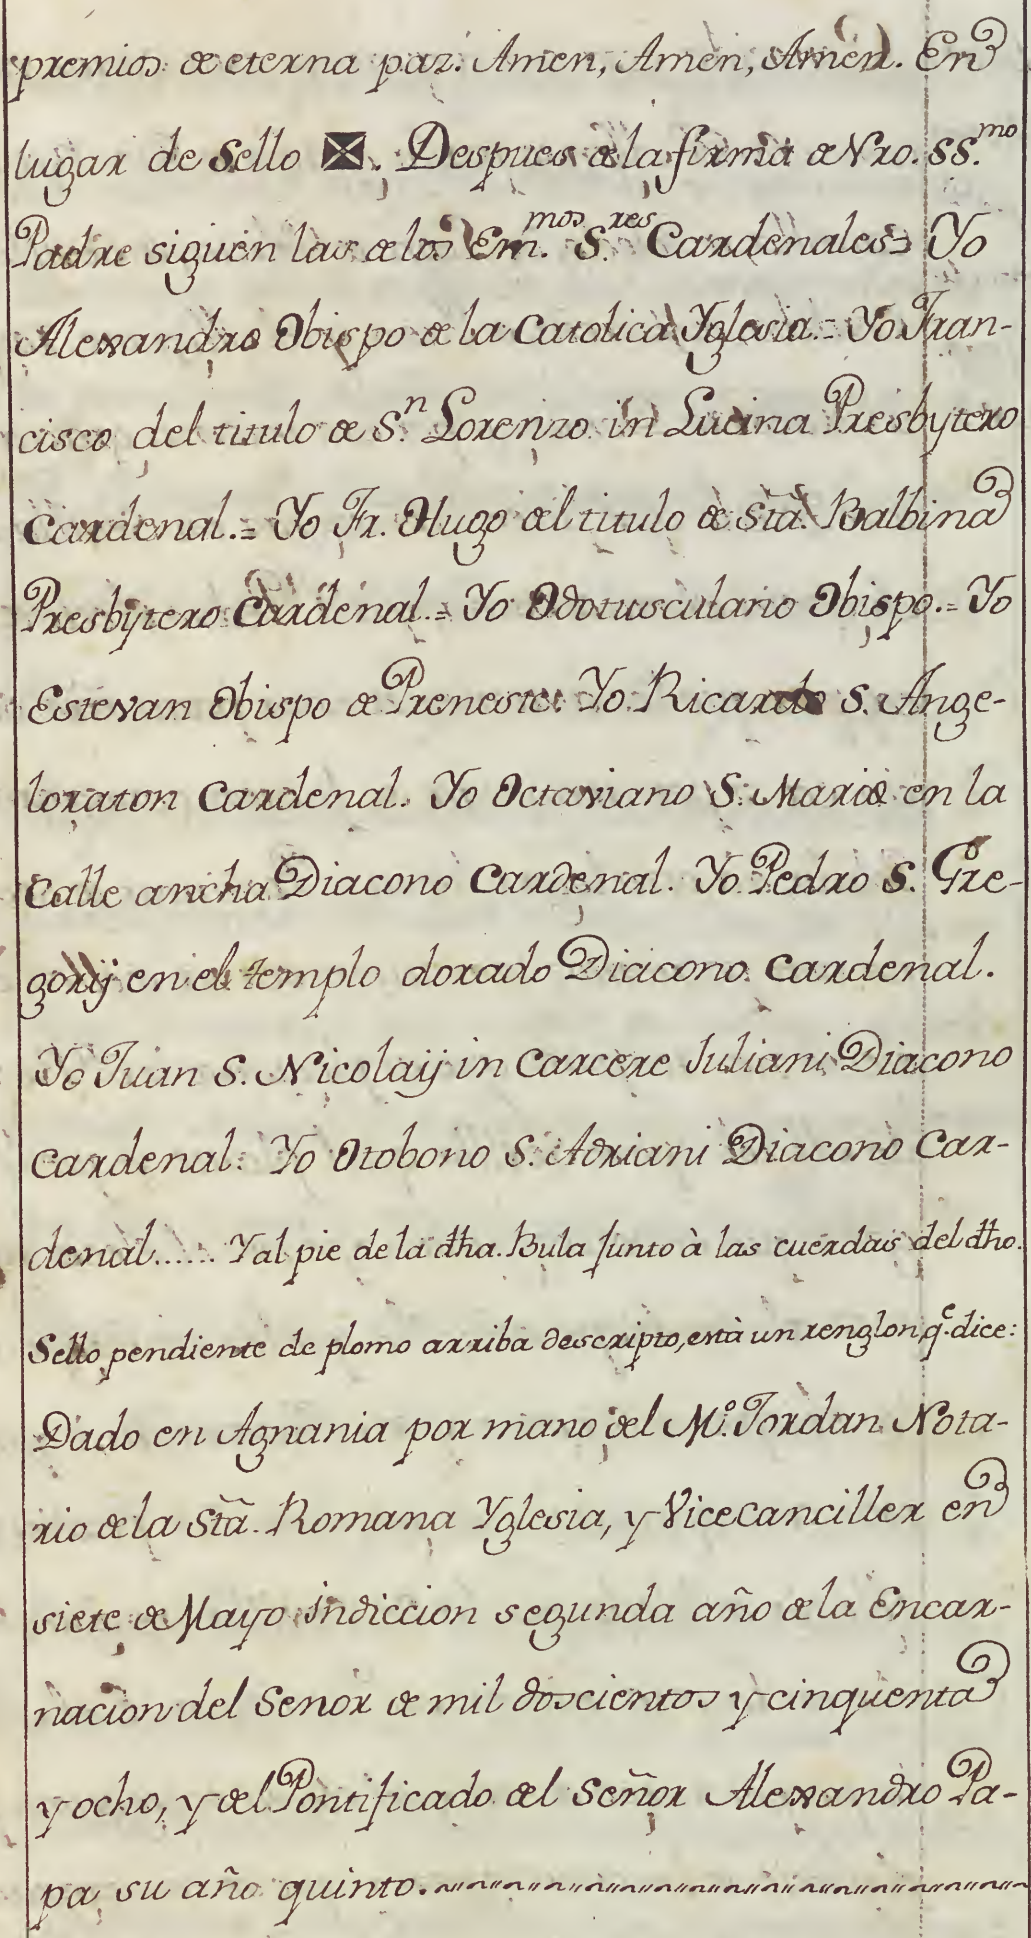 premios de eterna paz. Amen, Amen, Amen. En
lugar de Sello ☒. Despues de la firma de Nro. SS.mo
Padre siguen las de los Em.mos S.res Cardenales= Yo
Alexandro Obispo de la Catolica Yglesia.= Yo Fran-
cisco del titulo de S.n Lorenzo in Lucina Presbytero
Cardenal.= Yo Fr. Hugo del titulo de Sta. Balbina
Presbytero Cardenal.= Yo Odotusculano Obispo.= Yo
Estevan Obispo de Preneste. Yo Ricardo S. Ange-
loraton Cardenal. Yo Octaviano S. Mariæ en la
Calle ancha Diacono Cardenal. Yo Pedro S. Gre-
gorij en el templo dorado Diacono Cardenal.
Yo Juan S. Nicolaij in Carcere Juliani Diacono
Cardenal. Yo Otobono S. Adriani Diacono Car-
denal...... Y al pie de la dha. Bula junto à las cuerdas del dho.
Sello pendiente de plomo arriba descripto, està un renglon q.e dice:
Dado en Agnania por mano del M.o Jordan Nota-
rio de la Sta. Romana Yglesia, y Vicecanciller en
siete de Mayo indiccion segunda año de la Encar-
nacion del Senor de mil doscientos y cinquenta
y ocho, y del Pontificado del Señor Alexandro Pa-
pa su año quinto.